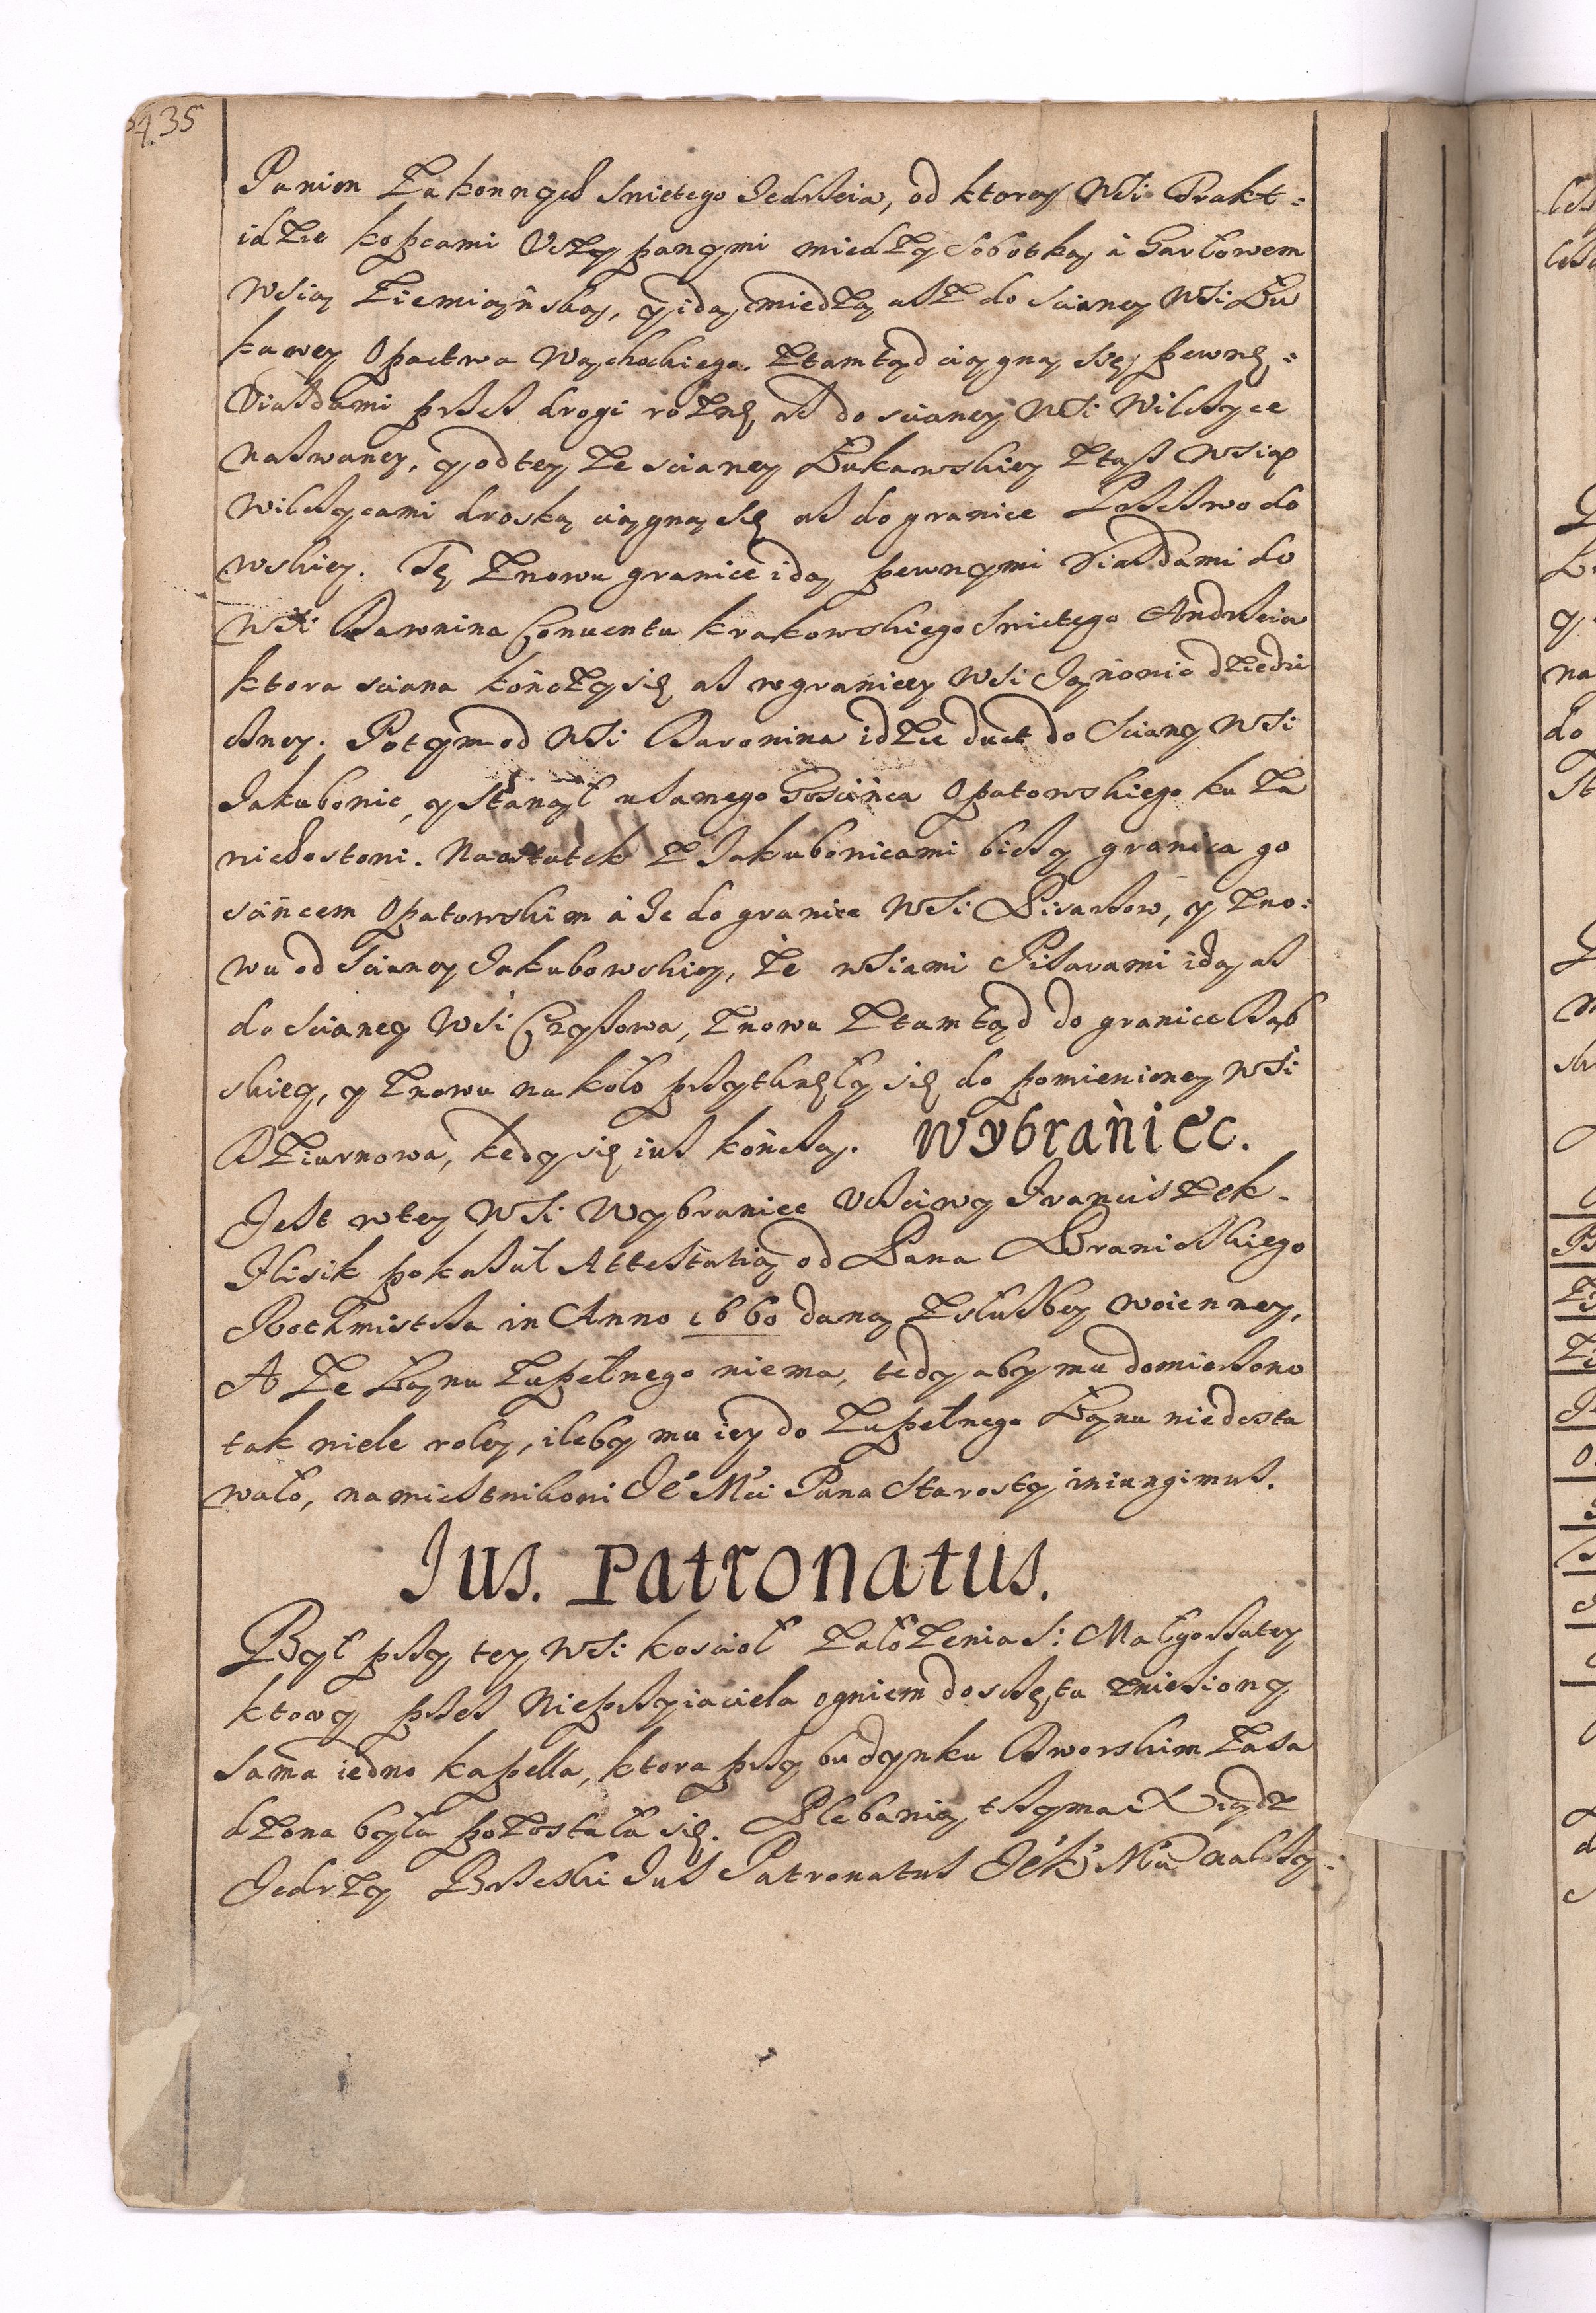 435
Panien Zakonnych Swietego Jedrzeia, od ktorey Wsi Trakt-
idzie kopcami Uszypanymi miedzy Sobotką á Garbowem
Wsią Ziemiańską, y idą miedzą asz do Sciany Wsi Łu
kawey Opactwa Wąchockiego. Ztamtąd ciągną się pewnę-
Viazdami przez drogi roznę, az do sciany Wsi Wilczyce
nazwaney, y od tey ze scianey Łukawskiey ztąsz Wsią
Wilczycami droszką ciągną się az do granice
wskiey. Tę znowu granice idą pewnymi Viazdami do
Wsi Conuentu krakowskiego Swietego Andrzeia
ktora sciana kończy się az w granicy Wsi dziedzi
czney. Potym od Wsi idzie duct do Sciany Wsi
Jakubowic, y Stanął u samego Gościńca Opatowskiego ku Za
nichostowi. Na ostatek z Jakubowicami bieży granica go
scińcem Opatowskim á ze do granice Wsi Pisarzow, y zno-
wu od Scianey Jakubowskiey, ze wsiami Pisarami idą az
do Scianey Wsi Czyżowa, znowu ztamtąd do granice Dąb
skiey, y znowu na koło przytknęły się do pomienioney Wsi
Dziurnowa, kedy się iusz kończą. Wybraniec.
Jest w tey Wsi Wybraniec Uczciwy Franciszek
pokazał Attestatią od Pana Branickiego
Rothmistrza in Anno 1660 daną z służbey woienney,
A ze Łanu zupełnego niema, tedy aby mu domierzono
tak wiele roley, ileby mu iey do zupełnego Łanu niedosta
wało, namiestnikowi Jeo Mci Pana Starosty iniungimus.
Jus. Patronatus.
Był przy tey Wsi koscioł załozenia S: Małgorzatey
ktory przez Nieprzyiaciela ogniem doszczętu zniesiony
sama iedno kapella, ktora przy budynku Dworskim zasa
dzona była pozostała się. Plebanią trzyma Xiądz
Jedrzy Brzeski Jus Patronatus JeK. Mci należy.